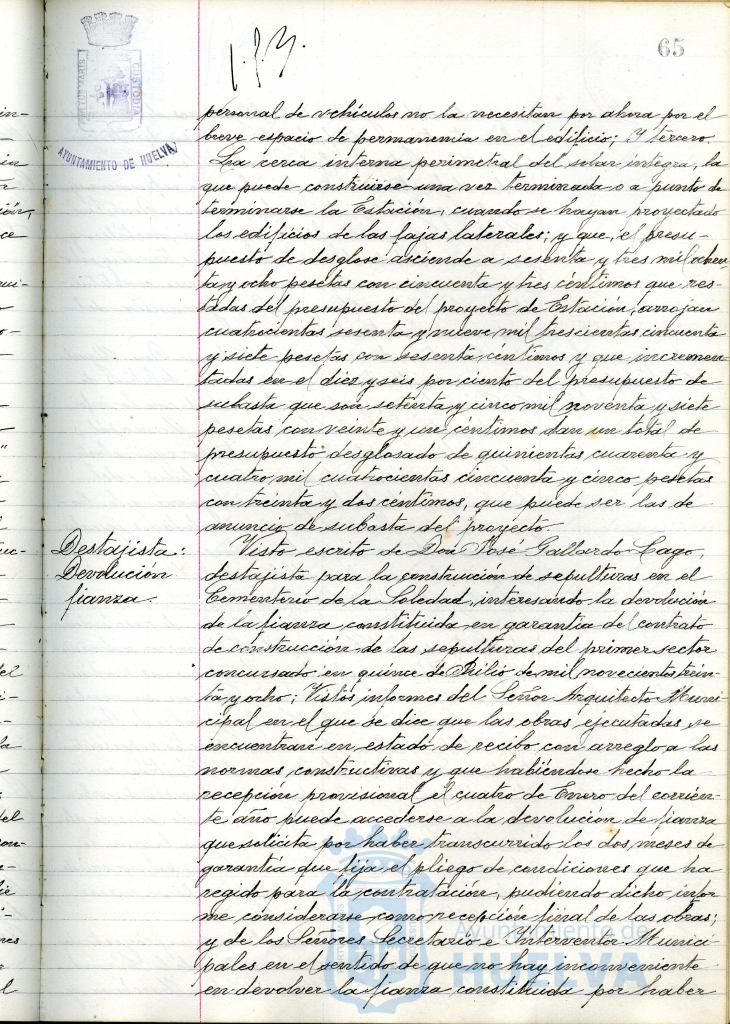 65
PORTUS MARIS
CUSTODIA
AYUNTAMIENTO DE HUELVA
personal de vehículos no la necesitan por ahora por el
breve espacio de permanencia en el edificio; Y tercero.
La cerca interna perimetral del solar íntegra, la
que puede construirse una vez terminada o a punto de
terminarse la Estación, cuando se hayan proyectado
los edificios de las fajas laterales; y que, el presu-
puesto de desglose asciende a sesenta y tres mil ochen-
ta y ocho pesetas con cincuenta y tres céntimos que res-
tadas del presupuesto del proyecto de Estación, arrojan
cuatrocientas sesenta y nueve mil trescientas cincuenta
y siete pesetas con sesenta céntimos y que incremen-
tadas en el diez y seis por ciento del presupuesto de
subasta que son setenta y cinco mil noventa y siete
pesetas con veinte y un céntimos dan un total de
presupuesto desglosado de quinientas cuarenta y
cuatro mil cuatrocientas cincuenta y cinco pesetas
con treinta y dos céntimos, que puede ser las de
anuncio de subasta del proyecto.
Destajista:
Devolución
fianza.
Visto escrito de Don José Gallardo Lago,
destajista para la construcción de sepulturas en el
Cementerio de la Soledad, interesando la devolución
de la fianza constituida en garantía del contrato
de construcción de las sepulturas del primer sector
concursado en quince de de mil novecientos trein-
ta y ocho; Vistos informes del Señor Arquitecto Muni-
cipal en el que se dice que las obras ejecutadas, se
encuentran en estado de recibo con arreglo a las
normas constructivas y que habiéndose hecho la
recepción provisional el cuatro de Enero del corrien-
te año puede accederse a la devolución de fianza
que solicita por haber transcurrido los dos meses de
garantía que fija el pliego de condiciones que ha
regido para la contratación, pudiendo dicho infor
me considerarse como recepción final de las obras;
y de los Señores Secretario e Interventor Munici-
pales en el sentido de que no hay inconveniente
en devolver la fianza constituida por haber
Ayuntamiento de
HUELVA